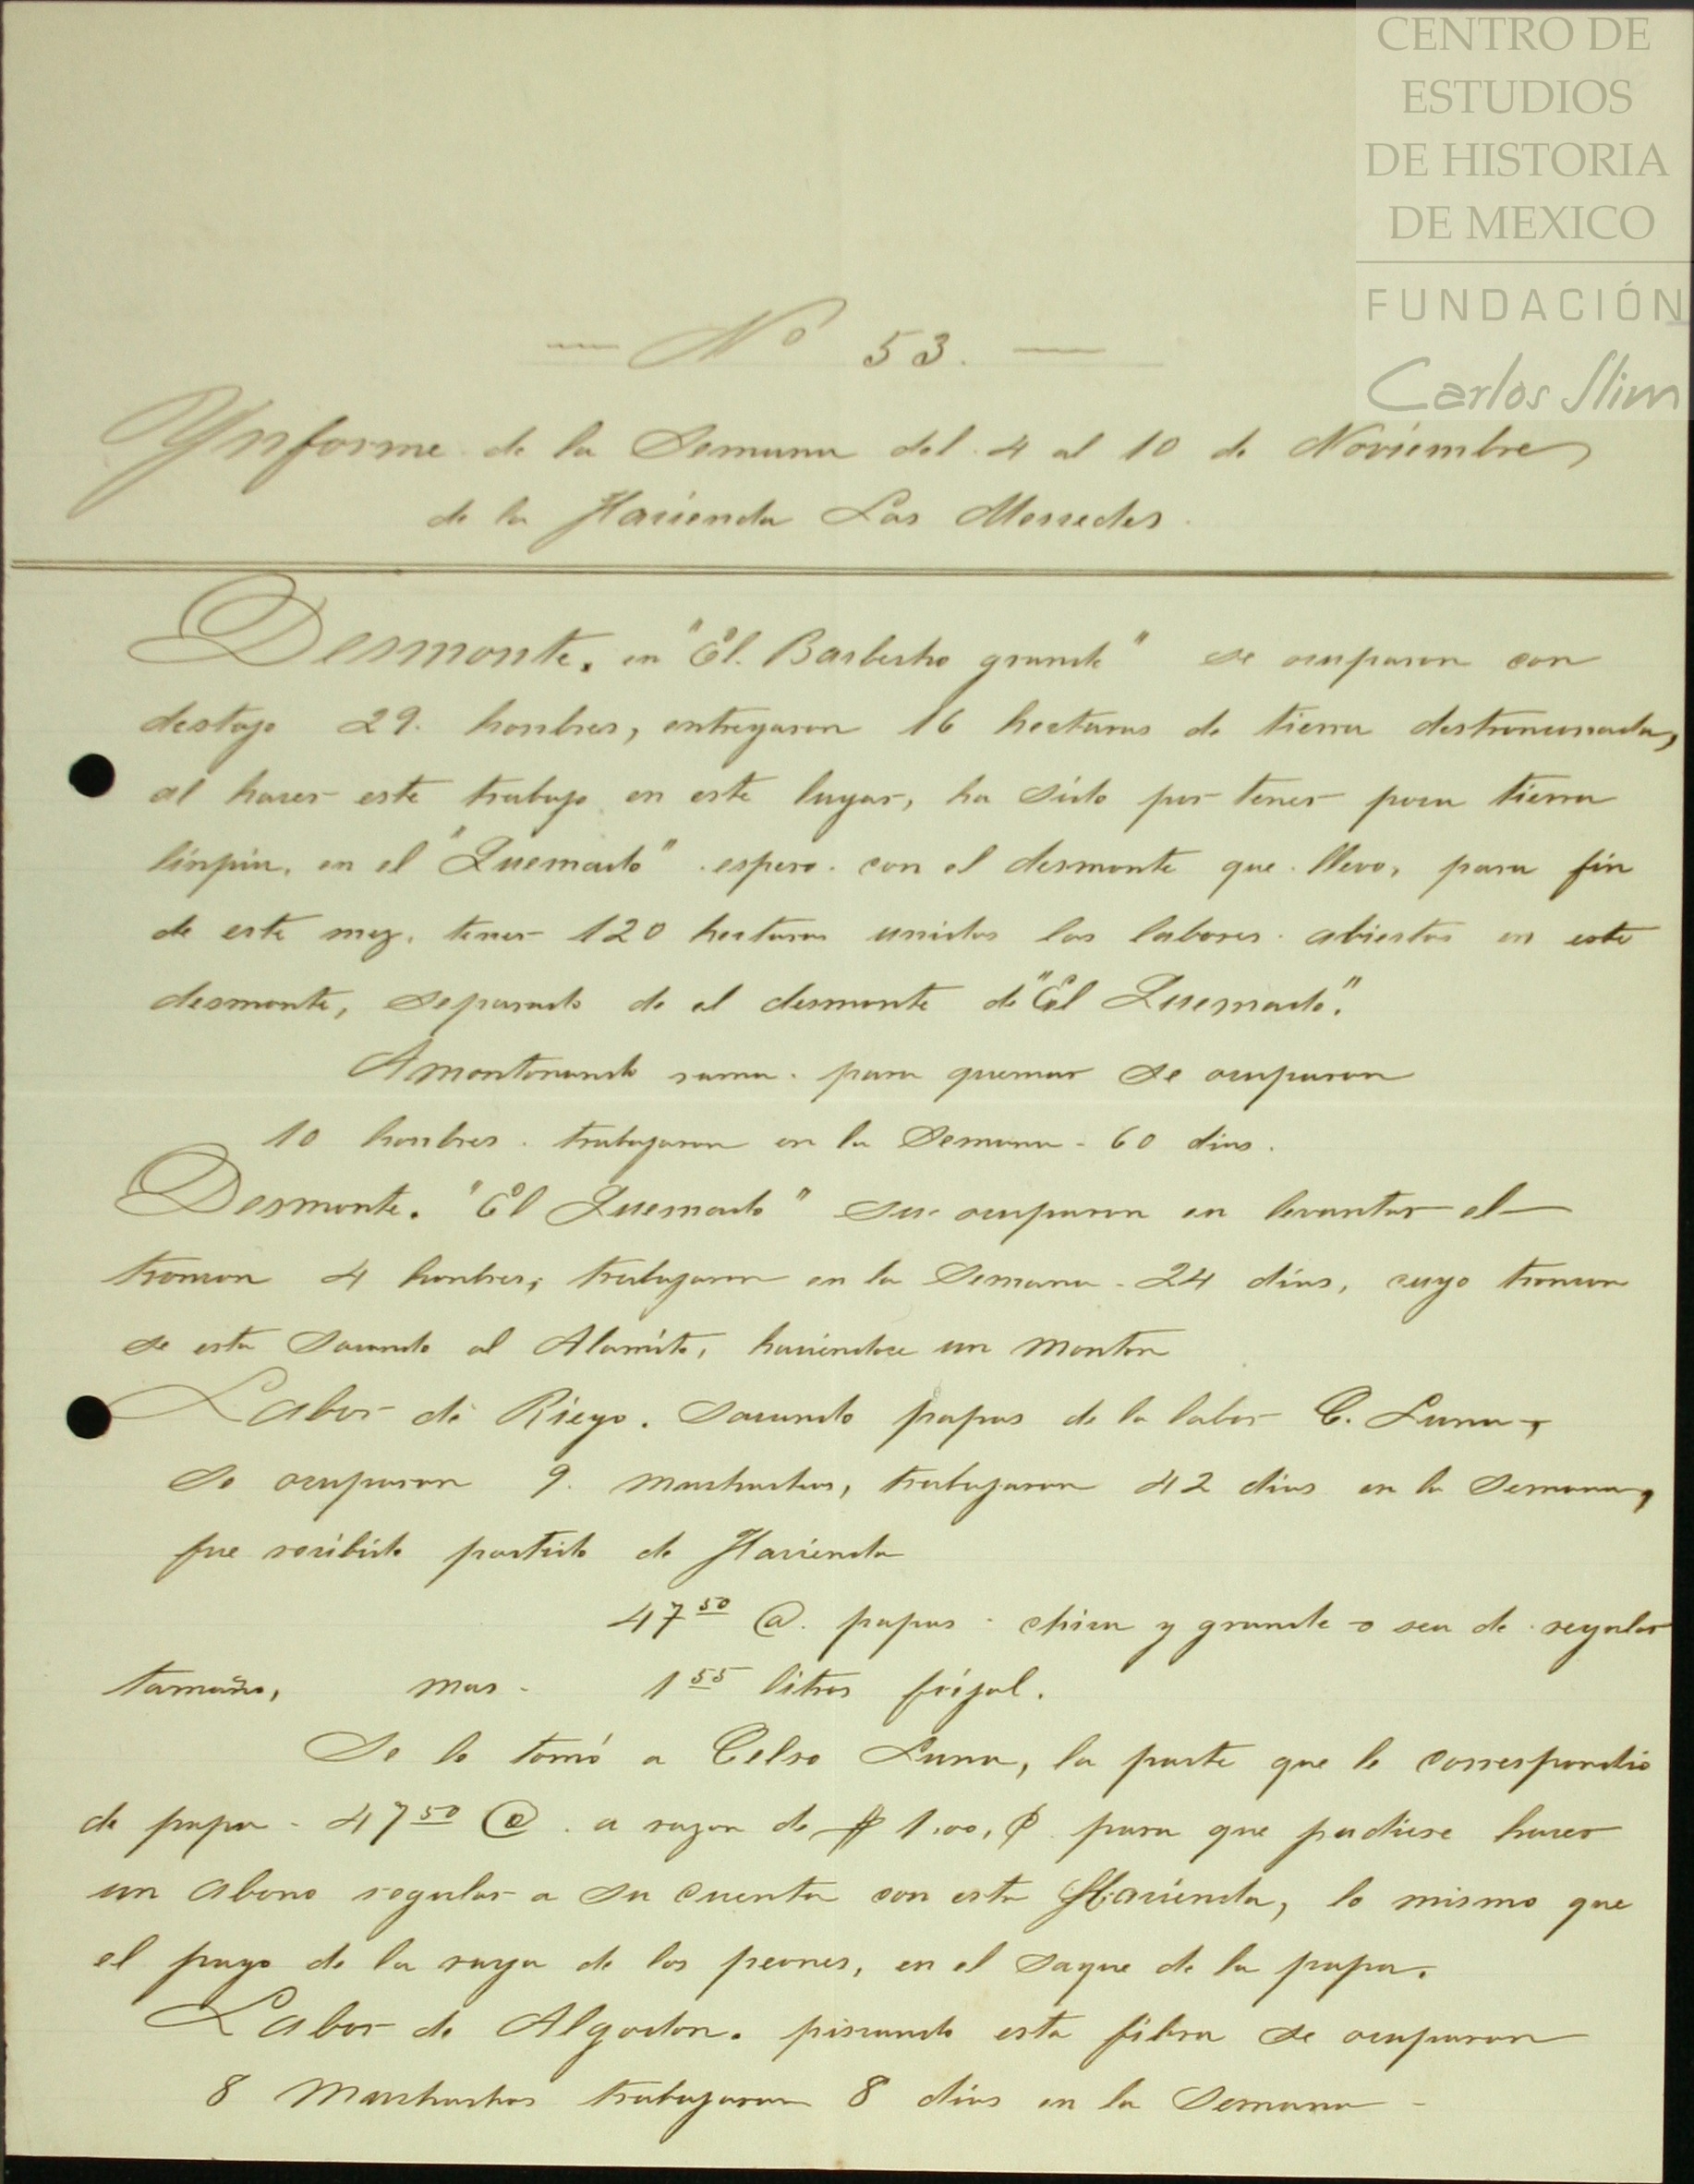 CENTRO DE
ESTUDIOS
DE HISTORIA
DE MEXICO
FUNDACIÓN
Carlos Slim
— Nº 53. —
Ynforme de la Semana del 4 al 10 de Noviembre
de la Hacienda Las Mercedes.
Desmonte. en "El Barbecho grande" se ocuparon con
destajo 29. hombres, entregaron 16 hectaras de tierra destronconada,
al hacer este trabajo en este lugar, ha sido por tener poca tierra
linpia. en el "Quemado" espero con el desmonte que llevo, para fin
de este mez. tener 120 hectaras unidas las labores abiertas en este
desmonte, separado de el desmonte de "El Quemado".
Amontonando rama. para quemar se ocuparon
10 honbres. trabajaron en la Semana - 60 dias.
Desmonte. "El Quemado" se ocuparon en levantar el
troncon 4 honbres, trabajaron en la Semana - 24 dias, cuyo troncon
se esta sacando al Alamito, haciendose un monton
Labor de Riego. Sacando papas de la labor C. Luna,
se ocuparon 9. muchachos, trabajaron 42 dias en la Semana,
fue recibido partido de Hacienda
47 50 @. papas - chica y grande o sea de regular
tamaño, mas - 1 55 litros frijol.
Se le tomó a Celso Luna, la parte que le correspondio
de papa - 47 50 @. a razon de $ 1.00, @ para que pudiese hacer
un abono regular a su cuenta con esta Hacienda, lo mismo que
el pago de la raya de los peones, en el saque de la papa.
Labor de Algodon. piscando esta fibra se ocuparon
8 muchachos trabajaron 8 dias en la Semana -